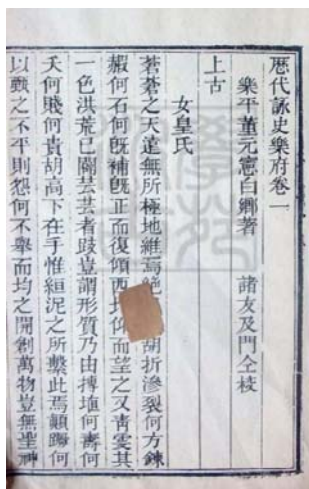 歷代詠史樂府卷一
樂平董元憲白鄉著　諸友及門仝校
上古
女皇氏
蒼蒼之天遣無所極地維焉絶胡折滲裂何方鍊
嘏何石何旣補旣正而復傾西仰而望之又靑雯其
一色洪荒已闢芸芸者跂豈謂形質乃由摶埴何壽何
夭何賤何貴胡高下在手惟絙泥之所繫此焉顚躋何
以戮之不平則怨何不舉而均之開創萬物豈無聖神